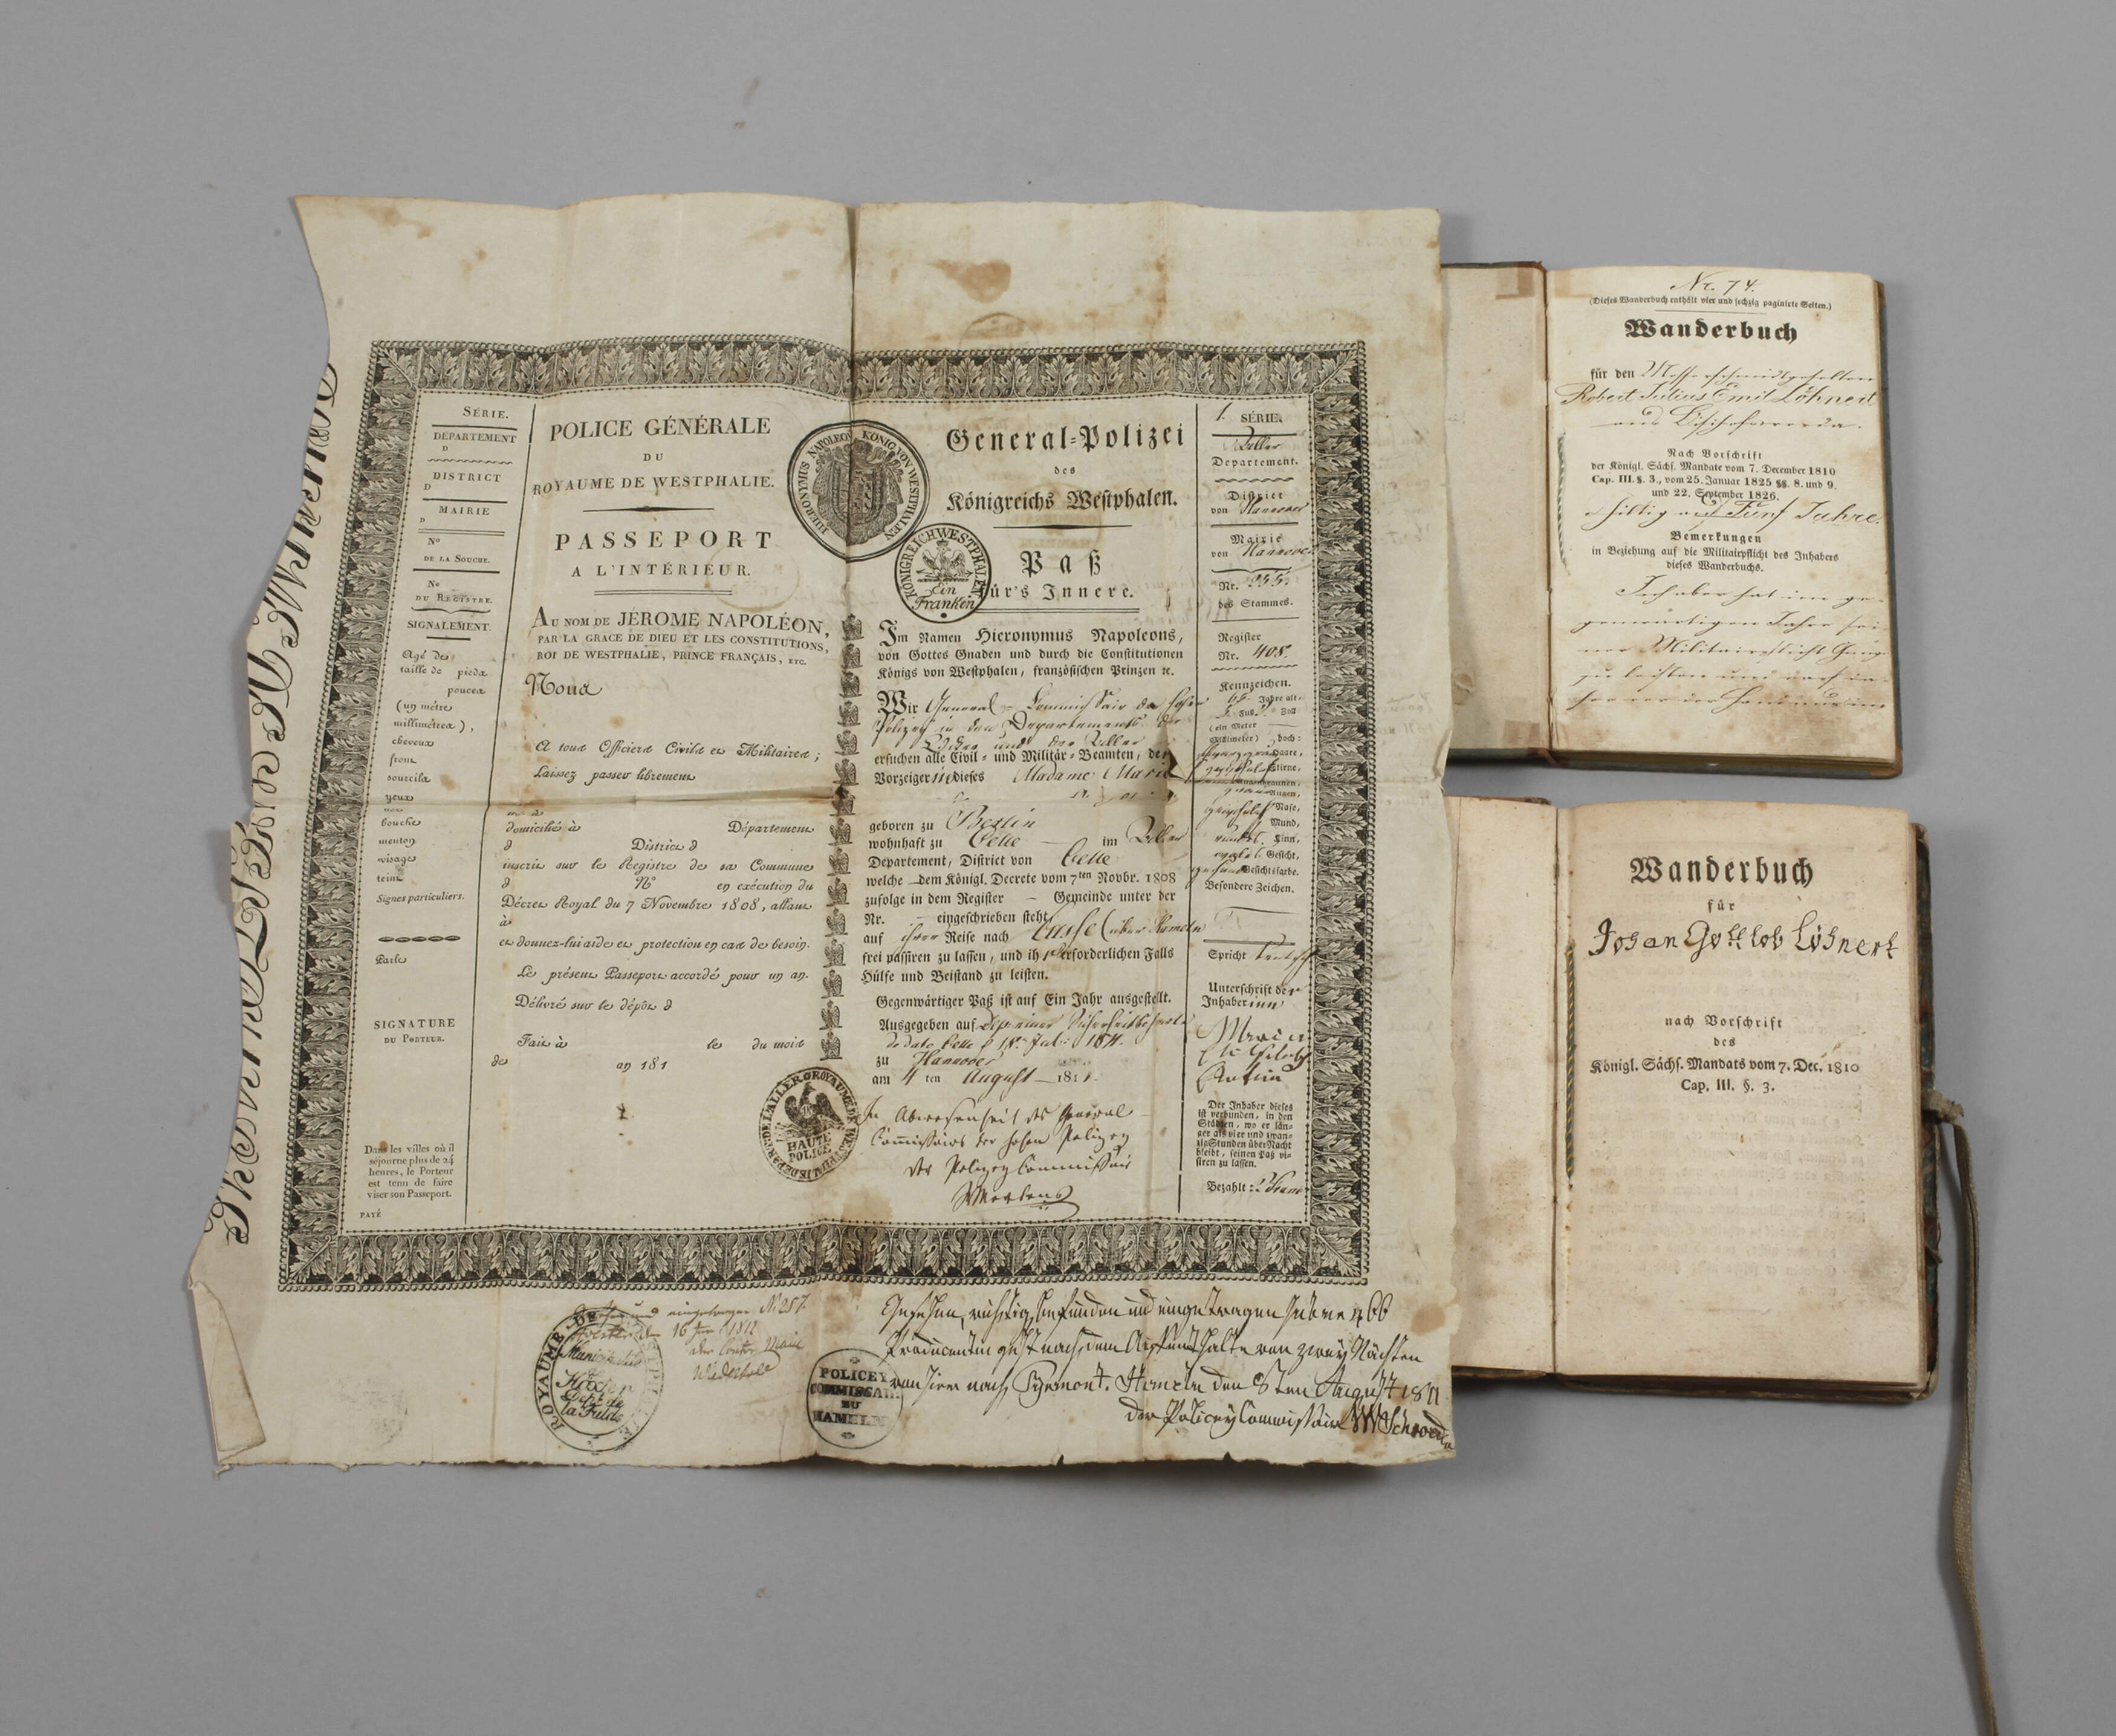 SÉRIE.
DÉPARTEMENT
D
DISTRICT
D
MAIRIE
D
N°
DE LA SOUCHE.
N°
DU REGISTRE.
SIGNALEMENT.
Agé de
taille de pieds
pouces
(un mètre
millimètres),
cheveux
front
sourcils
yeux
nez
bouche
menton
visage
teint
Signes particuliers.
Parle
SIGNATURE
DU PORTEUR.
Dans les villes où il
séjourne plus de 24
heures, le Porteur
est tenu de faire
viser son Passeport.
PAYÉ
POLICE GÉNÉRALE
DU
ROYAUME DE WESTPHALIE.
PASSEPORT
A L'INTÉRIEUR.
AU NOM DE JÉROME NAPOLÉON,
PAR LA GRACE DE DIEU ET LES CONSTITUTIONS,
ROI DE WESTPHALIE, PRINCE FRANÇAIS, ETC.
Nous
A tous Officiers Civils et Militaires;
Laissez passer librement
né à
domicilié à Département
d District d
inscrit sur le Registre de sa Commune
d N° en exécution du
Décret Royal du 7 Novembre 1808, allant
à
et donnez-lui aide et protection en cas de besoin.
Le présent Passeport accordé pour un an.
Délivré sur le dépôt d
Fait à le du mois
de an 181
HIERONYMUS NAPOLEON KÖNIG VON WESTPHALEN
KÖNIGREICH WESTPHALEN
Ein
Franken
HAUTE
POLICE
General-Polizei
des
Königreichs Westphalen.
Paß
für's Innere.
Im Namen Hieronymus Napoleons,
von Gottes Gnaden und durch die Constitutionen
Königs von Westphalen, französischen Prinzen ꝛc.
Wir General-Commissair der hohen
Polizei in den Departements der
und der Aller
ersuchen alle Civil- und Militär-Beamten, den
Vorzeigerin dieses Madame Marie
geboren zu Berlin
wohnhaft zu Celle im Aller
Departement, District von Celle
welche dem Königl. Decrete vom 7ten Novbr. 1808
zufolge in dem Register – Gemeinde unter der
Nr. – eingeschrieben steht,
auf ihrer Reise nach Cassel über Hameln
frei passiren zu lassen, und ihr erforderlichen Falls
Hülfe und Beistand zu leisten.
Gegenwärtiger Paß ist auf Ein Jahr ausgestellt.
Ausgegeben auf
de dato Celle 1811.
zu Hannover
am 4 ten August 1811.
In Abwesenheit des General
Commissairs der hohen Polizey
der Polizey Commissair
Mertens
1. SÉRIE.
Aller
Departement.
District
von Hannover
Mairie
von Hannover
Nr. 255.
des Stammes.
Register
Nr. 408.
Kennzeichen.
Jahre alt,
Fuß Zoll
(ein Meter
Millimeter) hoch:
Haare,
Stirne,
Augenbraunen,
Augen,
Nase,
Mund,
Kinn,
Gesicht,
Gesichtsfarbe.
Besondere Zeichen.
Spricht
Unterschrift der
Inhaberinn
Der Inhaber dieses
ist verbunden, in den
Städten, wo er län-
ger als vier und zwan-
zig Stunden über Nacht
bleibt, seinen Paß vi-
siren zu lassen.
Bezahlt:
eingetragen N. 257.
1811
der Maire
ROYAUME DE
Municipalité
Höxter
Dept de
la Fulde
POLICEY
COMMISSAIR
ZU
HAMELN
Gesehen, richtig befunden und eingetragen
Producentin geht nach dem Aufenthalte von zwey Nächten
von hier nach Pyrmont. Hameln den 8ten August 1811
der Policey Commissair Schroeder
Nr. 74.
(Dieses Wanderbuch enthält vier und sechzig paginirte Seiten.)
Wanderbuch
für den Messerschmidtgesellen
Robert Julius Emil Löhnert
aus Bischofswerda.
Nach Vorschrift
der Königl. Sächs. Mandate vom 7. December 1810
Cap. III. §. 3., vom 25. Januar 1825 §§. 8. und 9.
und 22. September 1826.
Giltig auf Fünf Jahre.
Bemerkungen
in Beziehung auf die Militairpflicht des Inhabers
dieses Wanderbuchs.
Inhaber hat im ge-
genwärtigen Jahre sei-
ner Militairpflicht Genüge
zu leisten und
Wanderbuch
für
Johan Gottlob Löhnert
nach Vorschrift
des
Königl. Sächs. Mandats vom 7. Dec. 1810
Cap. III. §. 3.